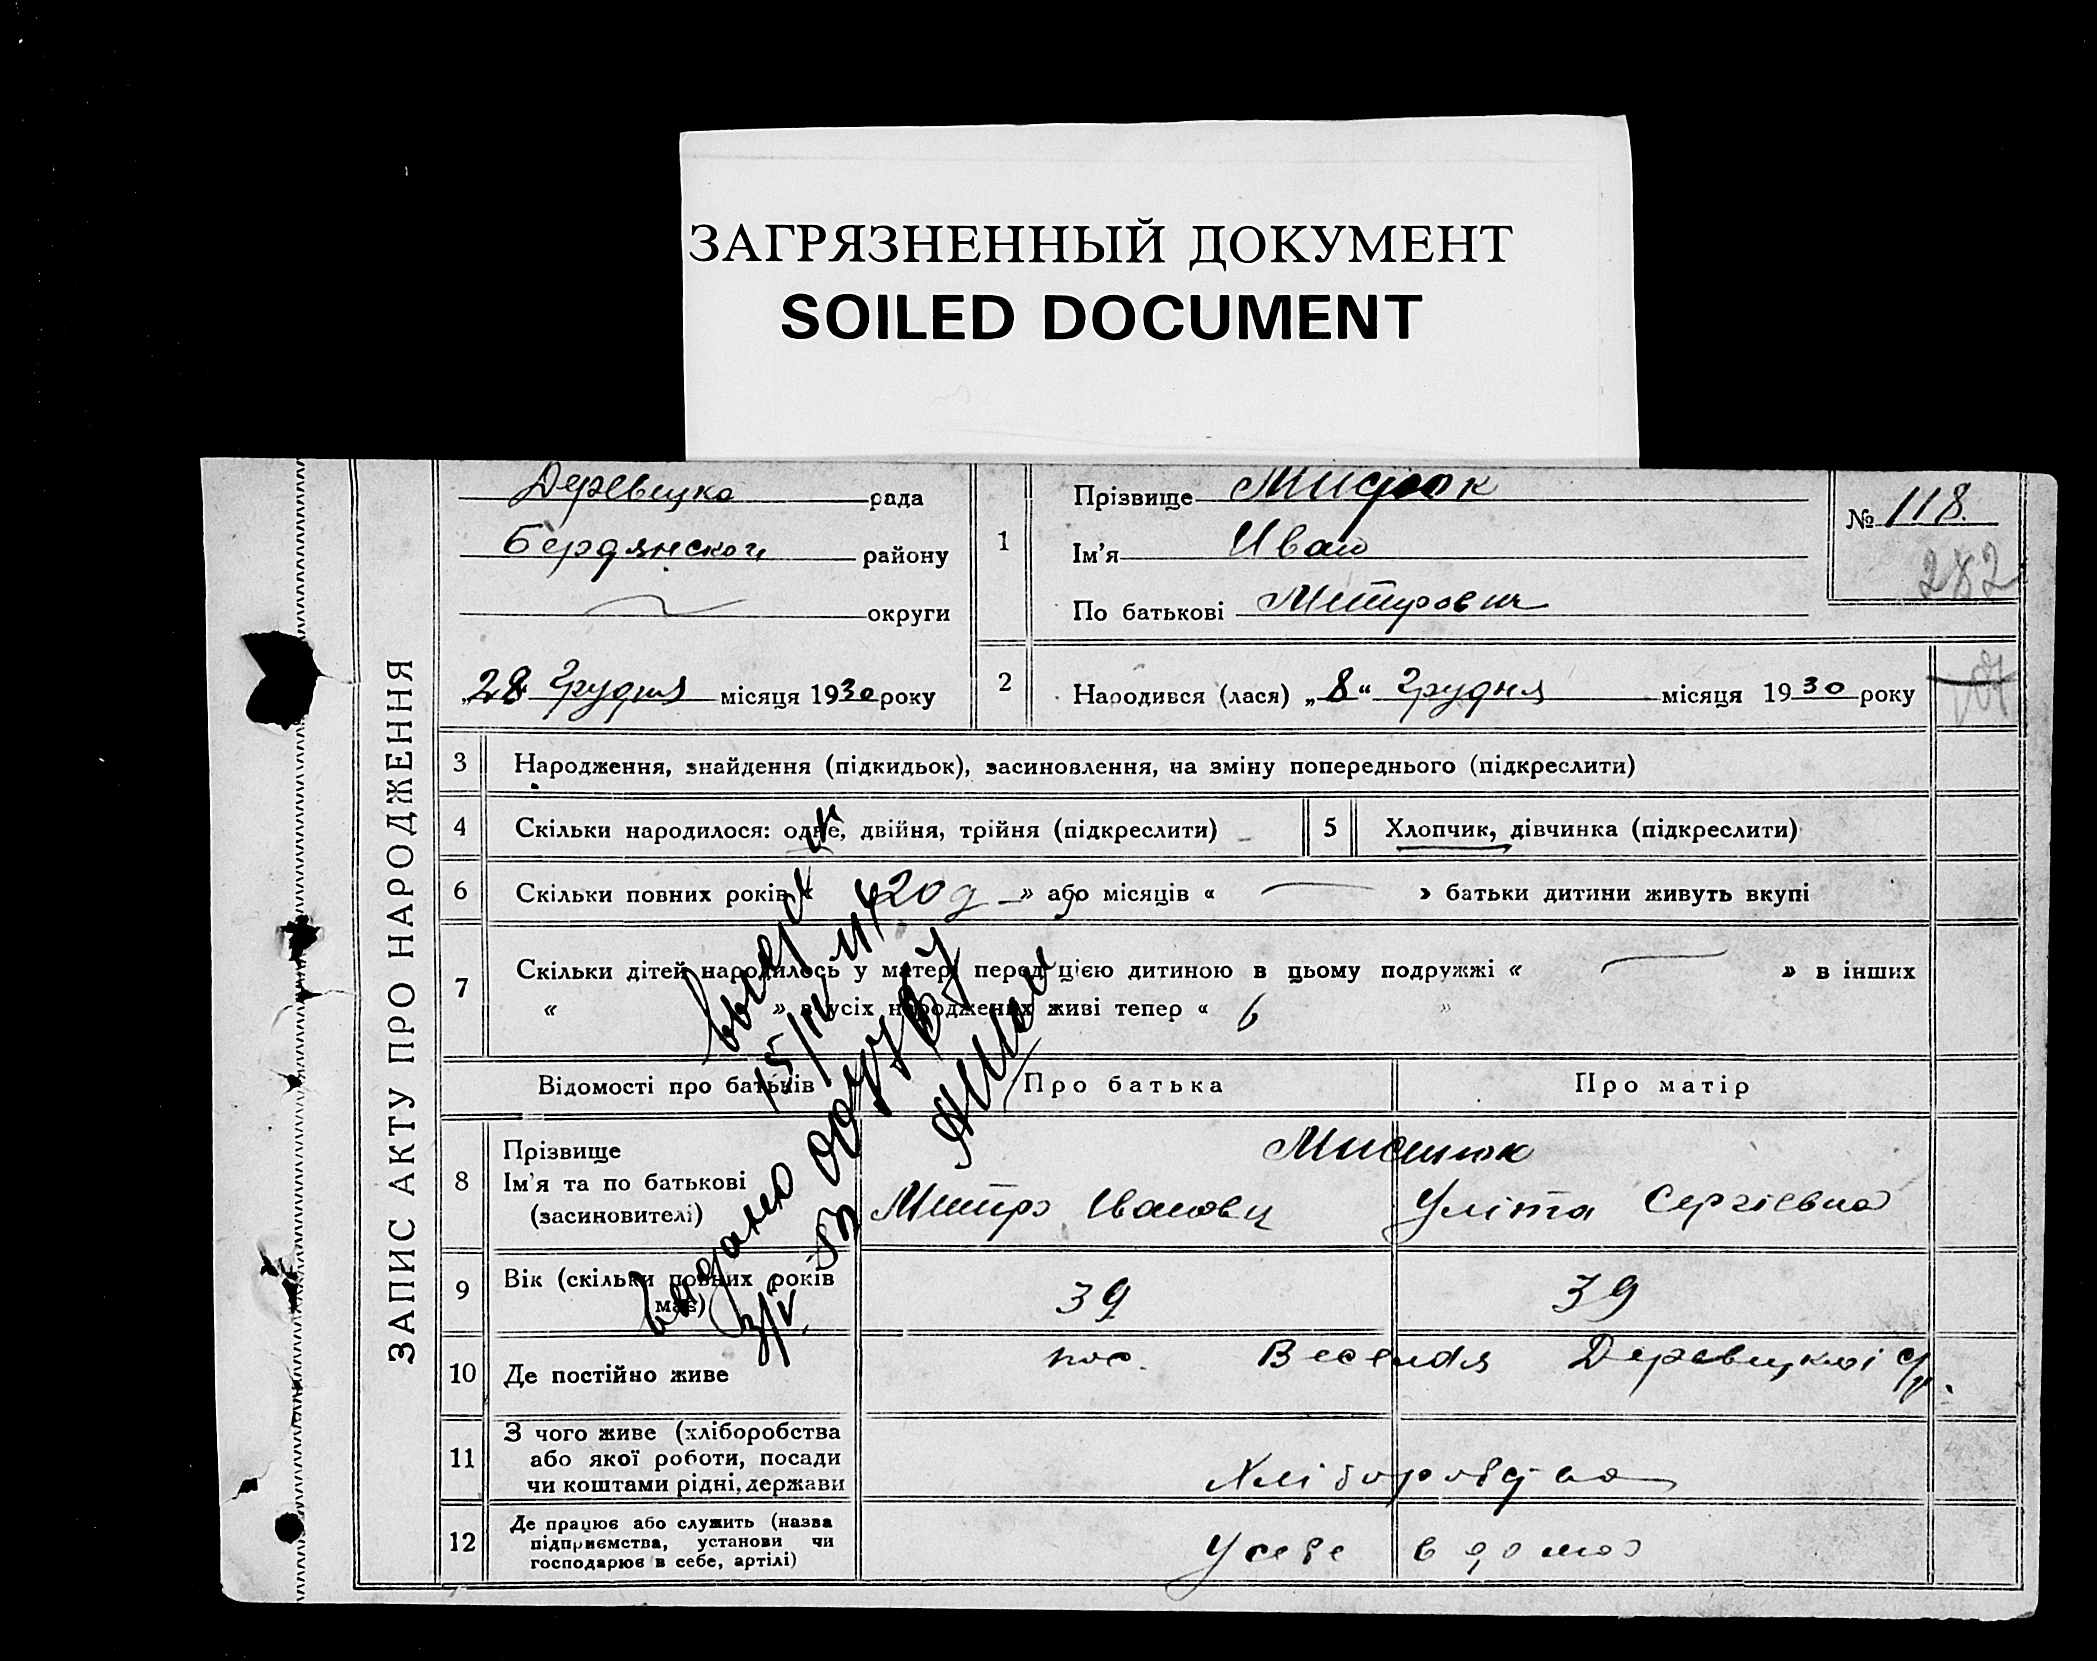 ЗАГРЯЗНЕННЫЙ ДОКУМЕНТ
SOILED DOCUMENT
ЗАПИС АКТУ ПРО НАРОДЖЕННЯ
рада
району
округи
„28 Грудня місяця 1930 року
1 Прізвище
Ім'я Иван
По батькові Митрович
№ 118
282
2 Народився (лася) „8“ Грудня місяця 1930 року
3 Народження, знайдення (підкидьок), засиновлення, на зміну попереднього (підкреслити)
4 Скільки народилося: одне, двійня, трійня (підкреслити)
5 Хлопчик, дівчинка (підкреслити)
6 Скільки повних років « 20 » або місяців « » батьки дитини живуть вкупі
7 Скільки дітей народилось у матері перед цією дитиною в цьому подружжі « » в інших
« » в усіх народжених живі тепер « 6 »
Відомості про батьків Про батька Про матір
8 Прізвище
Ім'я та по батькові
(засиновителі)
Мисинюк
Митро Іванович Уліта Сергіевна
9 Вік (скільки повних років
має) 39 39
10 Де постійно живе пос. Веселля
11 З чого живе (хліборобства
або якої роботи, посади
чи коштами рідні, держави
12 Де працює або служить (назва
підприємства, установи чи
господарює в себе, артілі)
У себе в дома
Видано